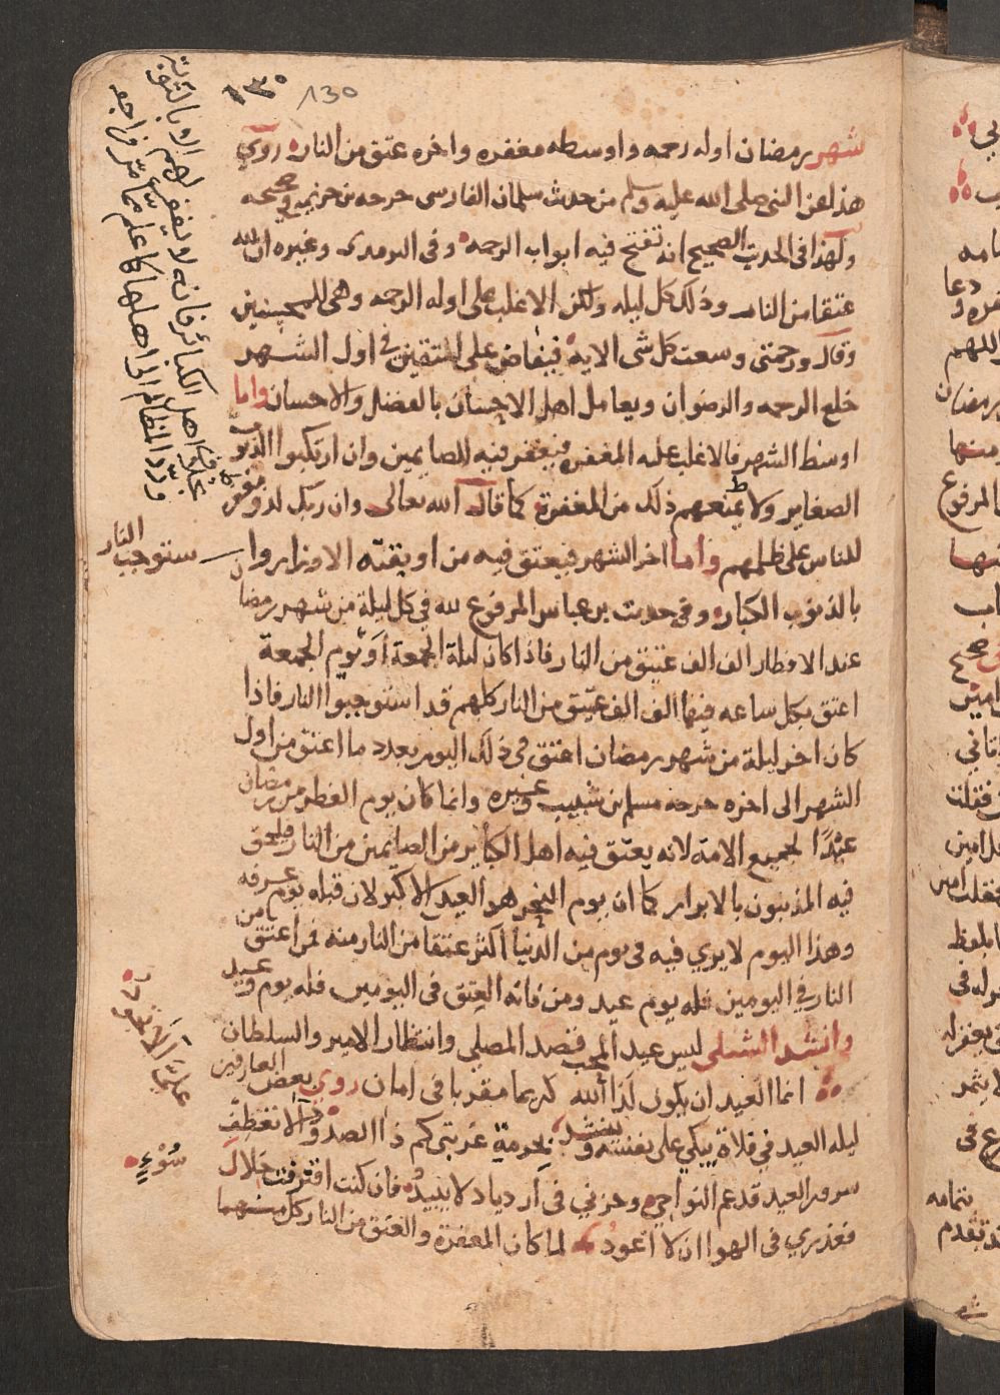 ١٣٠ 130
شهر رمضان اوله رحمه واوسطه مغفره واخره عتق من النار روي
هذا عن النبي صلى الله عليه وسلم من حديث سلمان الفارسى خرجه بن خزيمه في صحيحه
ولهذا فى الحديث الصحيح انه تفتح فيه ابواب الرحمه وفى الترمدى وغيره ان لله
عتقا من النار وذلك كل ليله ولكن الاغلب على اوله الرحمه وهى للمحسنين
وقال ورحمتى وسعت كل شى الايه فيفاض على المتقين في اول الشهر
خلع الرحمه والرضوان ويعامل اهل الاحسان بالفضل والاحسان واما
اوسط الشهر فالاغلب عليه المغفره فيغفر فيه للصايمين وان ارتكبوا الذنوب
الصغاير ولا يمنعهم ذلك من المغفرة كما قال الله تعالى وان ربك لذو مغفرة
للناس على ظلمهم واما اخر الشهر فيعتق فيه من اوبقته الاوزار وا
ستوجب النار
بالذنوب الكبار وفى حديث بن عباس المرفوع لله في كل ليلة من شهر رمضان
عند الافطار الف الف عتيق من النار فاذا كان ليلة الجمعة او يوم الجمعة
اعتق بكل ساعه فيها الف الف عتيق من النار كلهم قد استوجبوا النار فاذا
كان اخر ليلة من شهر رمضان اعتق في ذلك اليوم بعدد ما اعتق من اول
الشهر الى اخره خرجه مسلم بن شبيب وغيره وانما كان يوم الفطر من رمضان
عيدًا لجميع الامة لانه يعتق فيه اهل الكباير من الصايمين من النار فيلحق
فيه المذنبون بالابرار كما ان يوم النحر هو العيد الاكبر لان قبله يوم عرفه
وهذا اليوم لا يري فيه فى يوم من الدنيا اكثر عتقا من النار منه فمن اعتق من
النار في اليومين فله يوم عيد ومن فاته العتق فى اليومين فله يوم وعيد
وانشد الشبلى ليس عيد المحب قصد المصلي وانتظار الامير والسلطان
انما العيد ان يكون لذا الله كريما مقربا فى امان روي بعض العارفين
ليله العيد في فلاة يبكي على نفسه وينشد بحرمة غربتى كم ذا الصدود الا تعطف
على الا تجود
سرور العيد قد عم النواحي وحزني فى ازدياد لا يبيد فان كنت اقترفت خلال
سُوْءٍ
فعذري فى الهوا ان لا اعود لما كان المغفرة والعتق من النار كل منهما